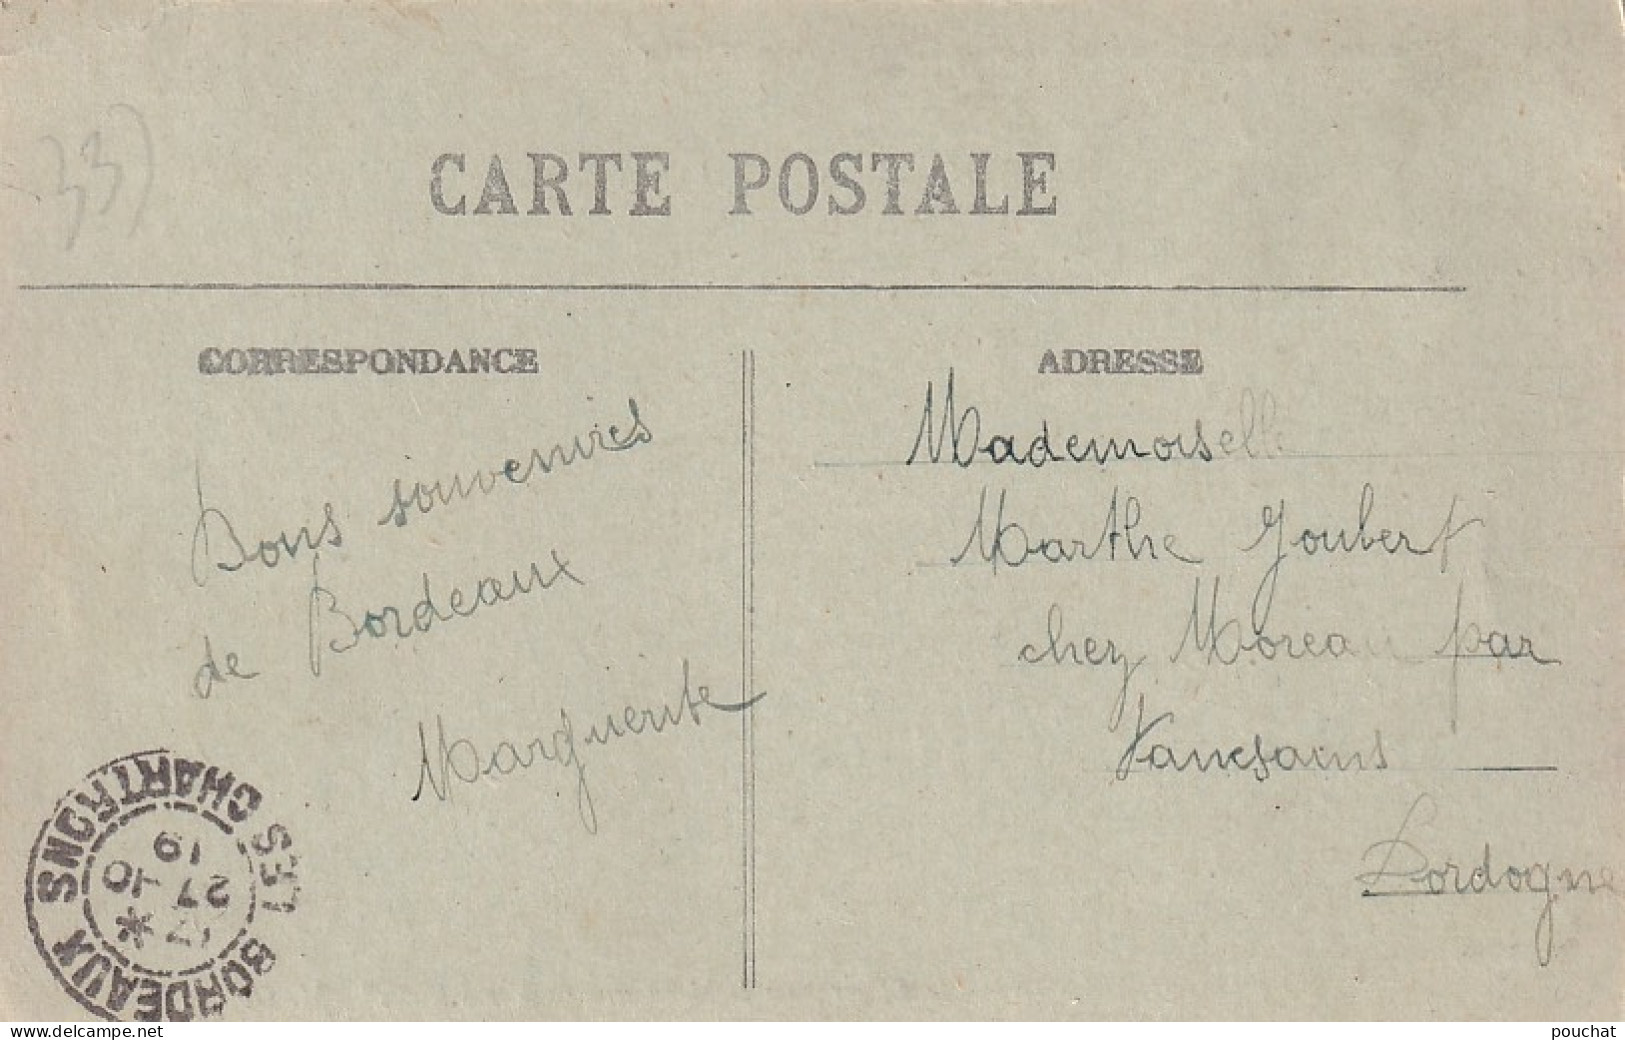 33)
CARTE POSTALE
CORRESPONDANCE
Bons souvenires
de Bordeaux
Marguerite
ADRESSE
Mademoiselle
Marthe Joubert
chez Moreau par
Vancsains
Dordogne
BORDEAUX LES CHARTRONS
27 10
19
www.delcampe.net
pouchat